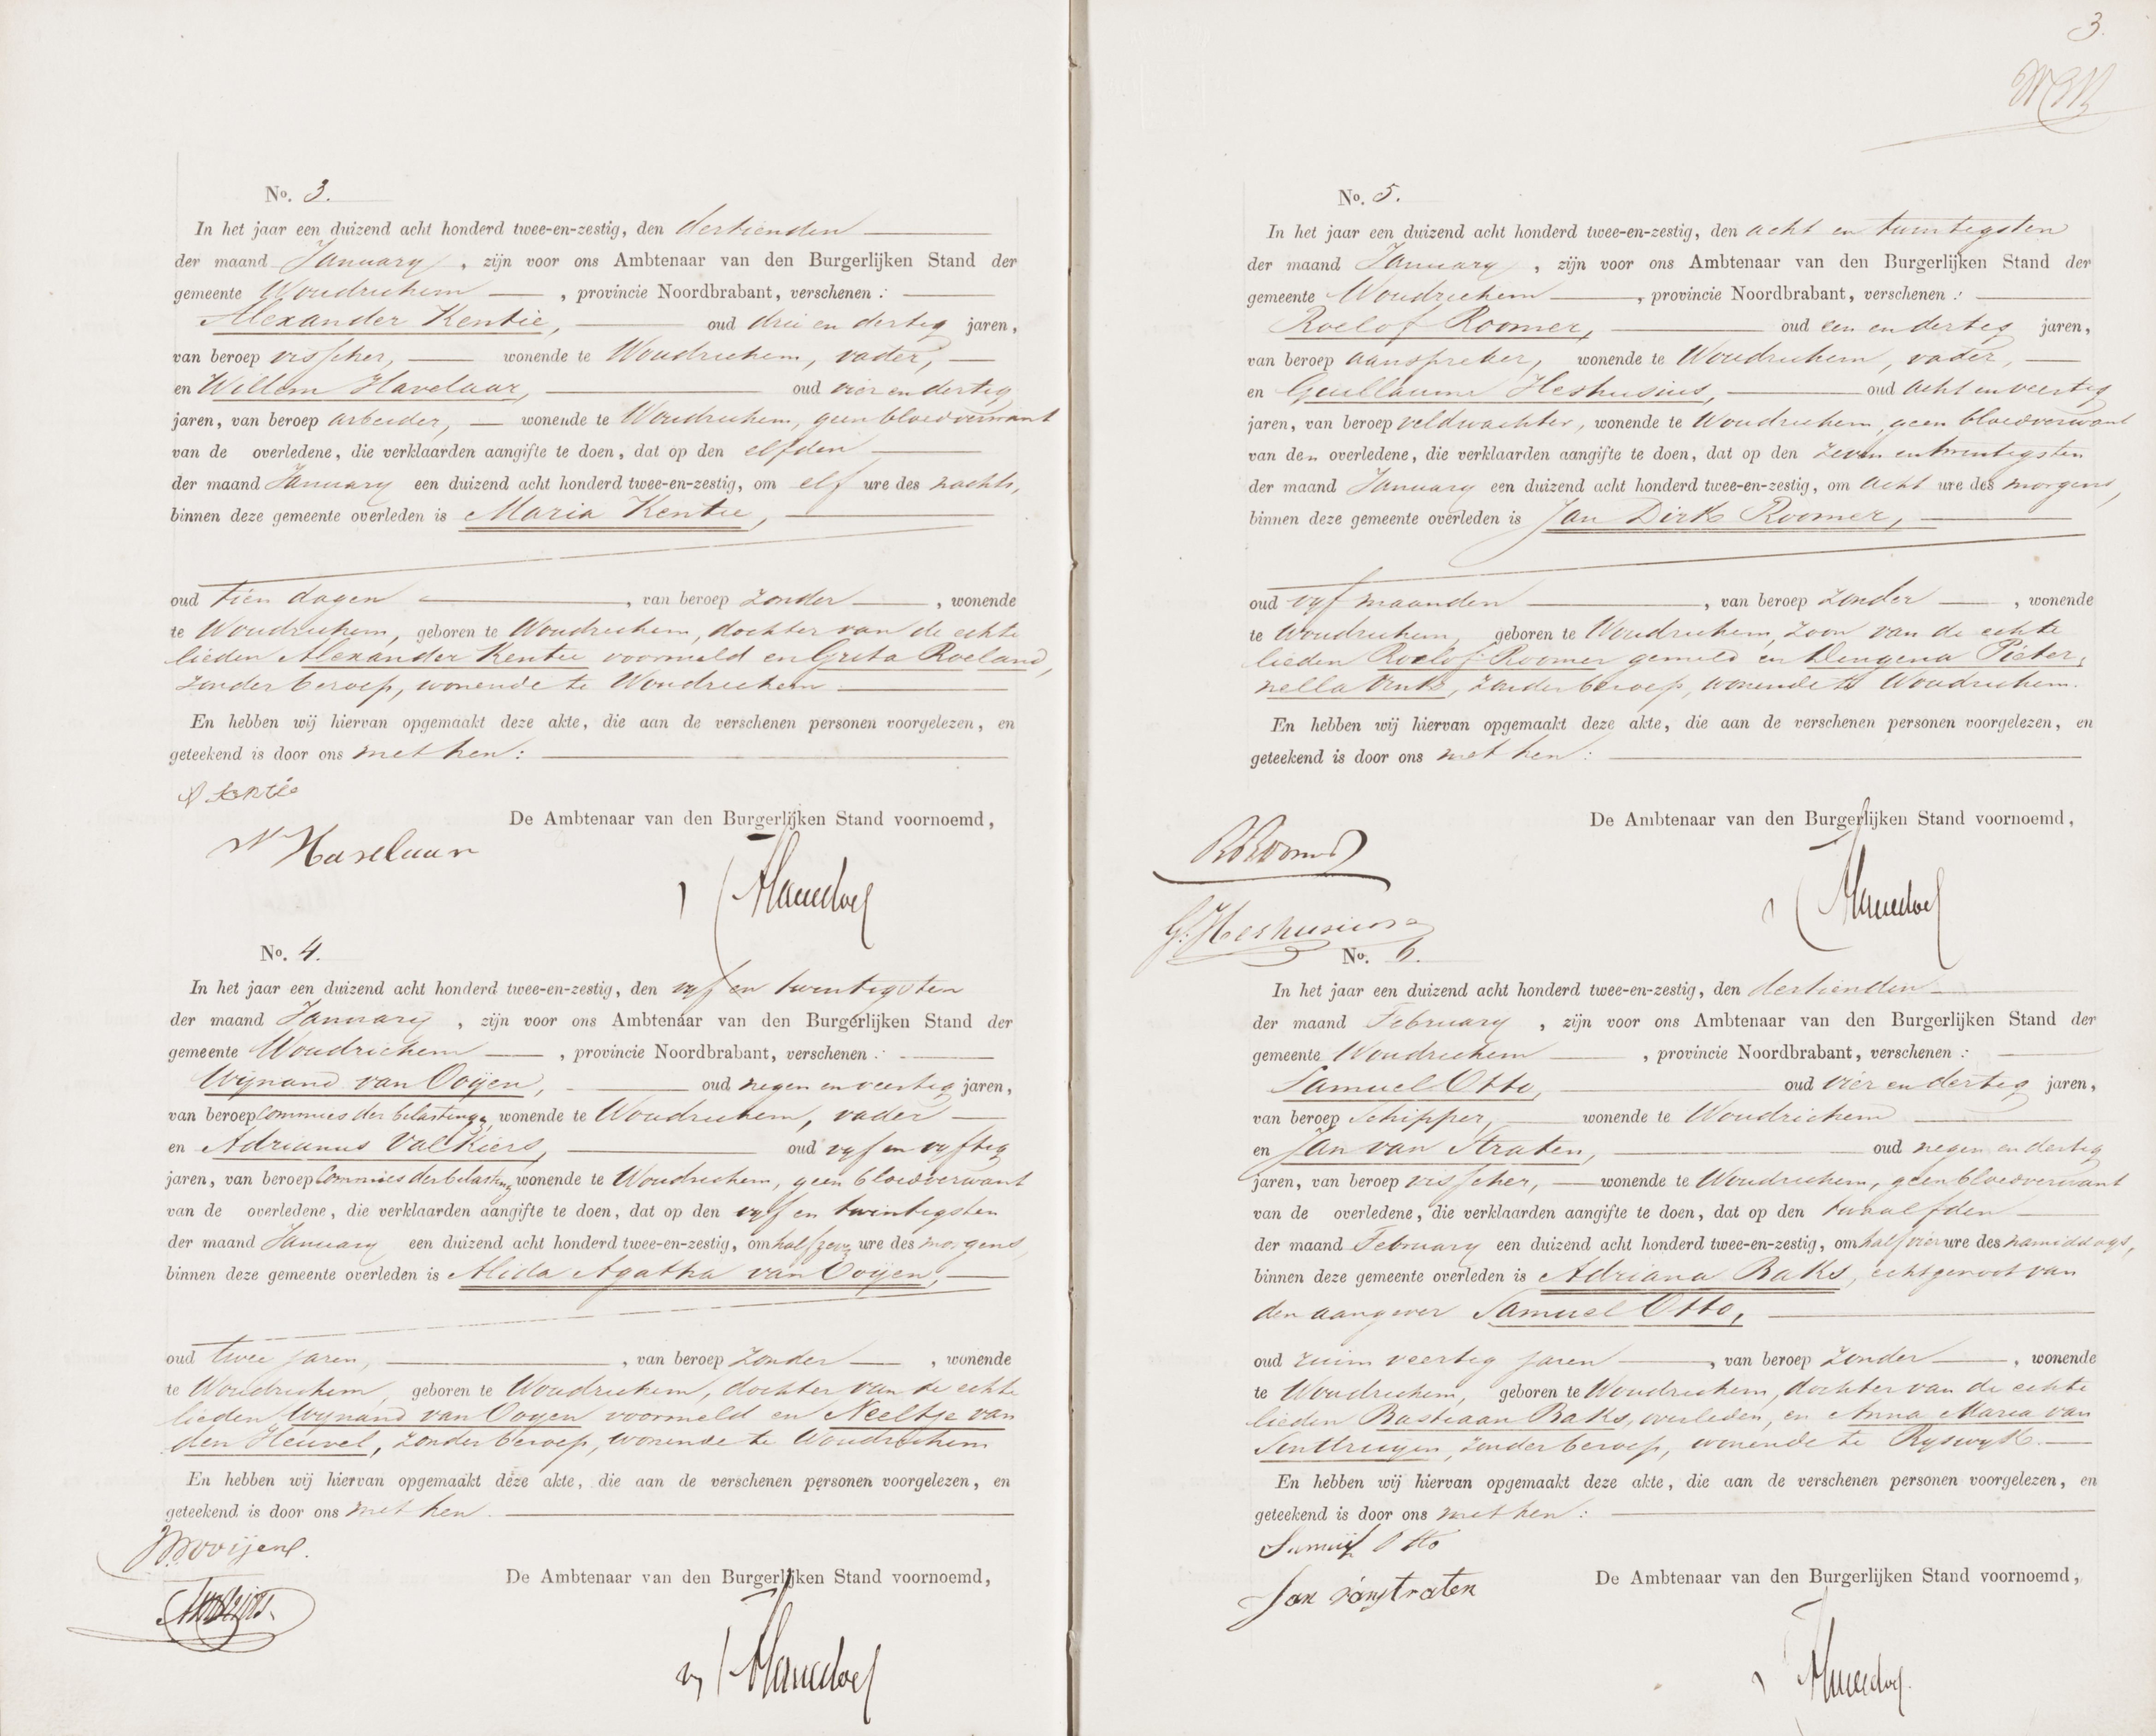 No. 3.
In het jaar een duizend acht honderd twee-en-zestig, den dertienden
der maand January, zijn voor ons Ambtenaar van den Burgerlijken Stand der
gemeente Woudrichem, provincie Noordbrabant, verschenen:
Alexander Kentie, oud drie en dertig jaren,
van beroep visscher, wonende te Woudrichem, vader,
en Willem Havelaar, oud vier en dertig
jaren, van beroep arbeider, wonende te Woudrichem, geen bloedverwant
van de overledene, die verklaarden aangifte te doen, dat op den elfden
der maand January een duizend acht honderd twee-en-zestig, om elf ure des nachts,
binnen deze gemeente overleden is Maria Kentie,
oud tien dagen, van beroep zonder, wonende
te Woudrichem, geboren te Woudrichem, dochter van de echte
lieden Alexander Kentie voormeld en Greta Roeland,
zonder beroep, wonende te Woudrichem
En hebben wij hiervan opgemaakt deze akte, die aan de verschenen personen voorgelezen, en
geteekend is door ons met hen:
A Kentie
De Ambtenaar van den Burgerlijken Stand voornoemd,
W Havelaar
No. 4.
In het jaar een duizend acht honderd twee-en-zestig, den vyf en twintigsten
der maand January, zijn voor ons Ambtenaar van den Burgerlijken Stand der
gemeente Woudrichem, provincie Noordbrabant, verschenen:
Wijnand van Ooijen, oud negen en veertig jaren,
van beroep Commies der belasting, wonende te Woudrichem, vader
en Adrianus Valkiers, oud vyf en vyftig
jaren, van beroep Commies der belasting wonende te Woudrichem, geen bloedverwant
van de overledene, die verklaarden aangifte te doen, dat op den vyf en twintigsten
der maand January een duizend acht honderd twee-en-zestig, om half zeven ure des morgens,
binnen deze gemeente overleden is Alida Agatha van Ooijen,
oud twee jaren, van beroep zonder, wonende
te Woudrichem, geboren te Woudrichem, dochter van de echte
lieden Wynand van Ooyen voormeld en Neeltje van
den Heuvel, zonder beroep, wonende te Woudrichem
En hebben wij hiervan opgemaakt deze akte, die aan de verschenen personen voorgelezen, en
geteekend is door ons met hen.
De Ambtenaar van den Burgerlijken Stand voornoemd,
3.
No. 5.
In het jaar een duizend acht honderd twee-en-zestig, den acht en twintigsten
der maand January, zijn voor ons Ambtenaar van den Burgerlijken Stand der
gemeente Woudrichem, provincie Noordbrabant, verschenen:
Roelof Roomer, oud een en dertig jaren,
van beroep aanspreker, wonende te Woudrichem, vader,
en Guillaume Heshusius, oud acht en veertig
jaren, van beroep veldwachter, wonende te Woudrichem, geen bloedverwant
van den overledene, die verklaarden aangifte te doen, dat op den zeven en twintigsten
der maand January een duizend acht honderd twee-en-zestig, om acht ure des morgens,
binnen deze gemeente overleden is Jan Dirk Roomer,
oud vyf maanden, van beroep zonder, wonende
te Woudrichem, geboren te Woudrichem, zoon van de echte
lieden Roelof Roomer gemeld en Dingena Pieter,
nella, zonder beroep, wonende te Woudrichem.
En hebben wij hiervan opgemaakt deze akte, die aan de verschenen personen voorgelezen, en
geteekend is door ons met hen:
De Ambtenaar van den Burgerlijken Stand voornoemd,
R Roomer
G. Heshusius
No. 6.
In het jaar een duizend acht honderd twee-en-zestig, den dertienden
der maand February, zijn voor ons Ambtenaar van den Burgerlijken Stand der
gemeente Woudrichem, provincie Noordbrabant, verschenen:
Samuel Otto, oud vier en dertig jaren,
van beroep Schipper, wonende te Woudrichem
en Jan van Straten, oud negen en dertig
jaren, van beroep visscher, wonende te Woudrichem, geen bloedverwant
van de overledene, die verklaarden aangifte te doen, dat op den twaalfden
der maand February een duizend acht honderd twee-en-zestig, om half vier ure des namiddags,
binnen deze gemeente overleden is Adriana Baks, echtgenoot van
den aangever Samuel Otto,
oud ruim veertig jaren, van beroep zonder, wonende
te Woudrichem, geboren te Woudrichem, dochter van de echte
lieden Bastiaan Baks, overleden, en Anna Maria van
zonder beroep, wonende te Ryswyk.
En hebben wij hiervan opgemaakt deze akte, die aan de verschenen personen voorgelezen, en
geteekend is door ons met hen:
Samuel Otto
De Ambtenaar van den Burgerlijken Stand voornoemd,
Jan van straten